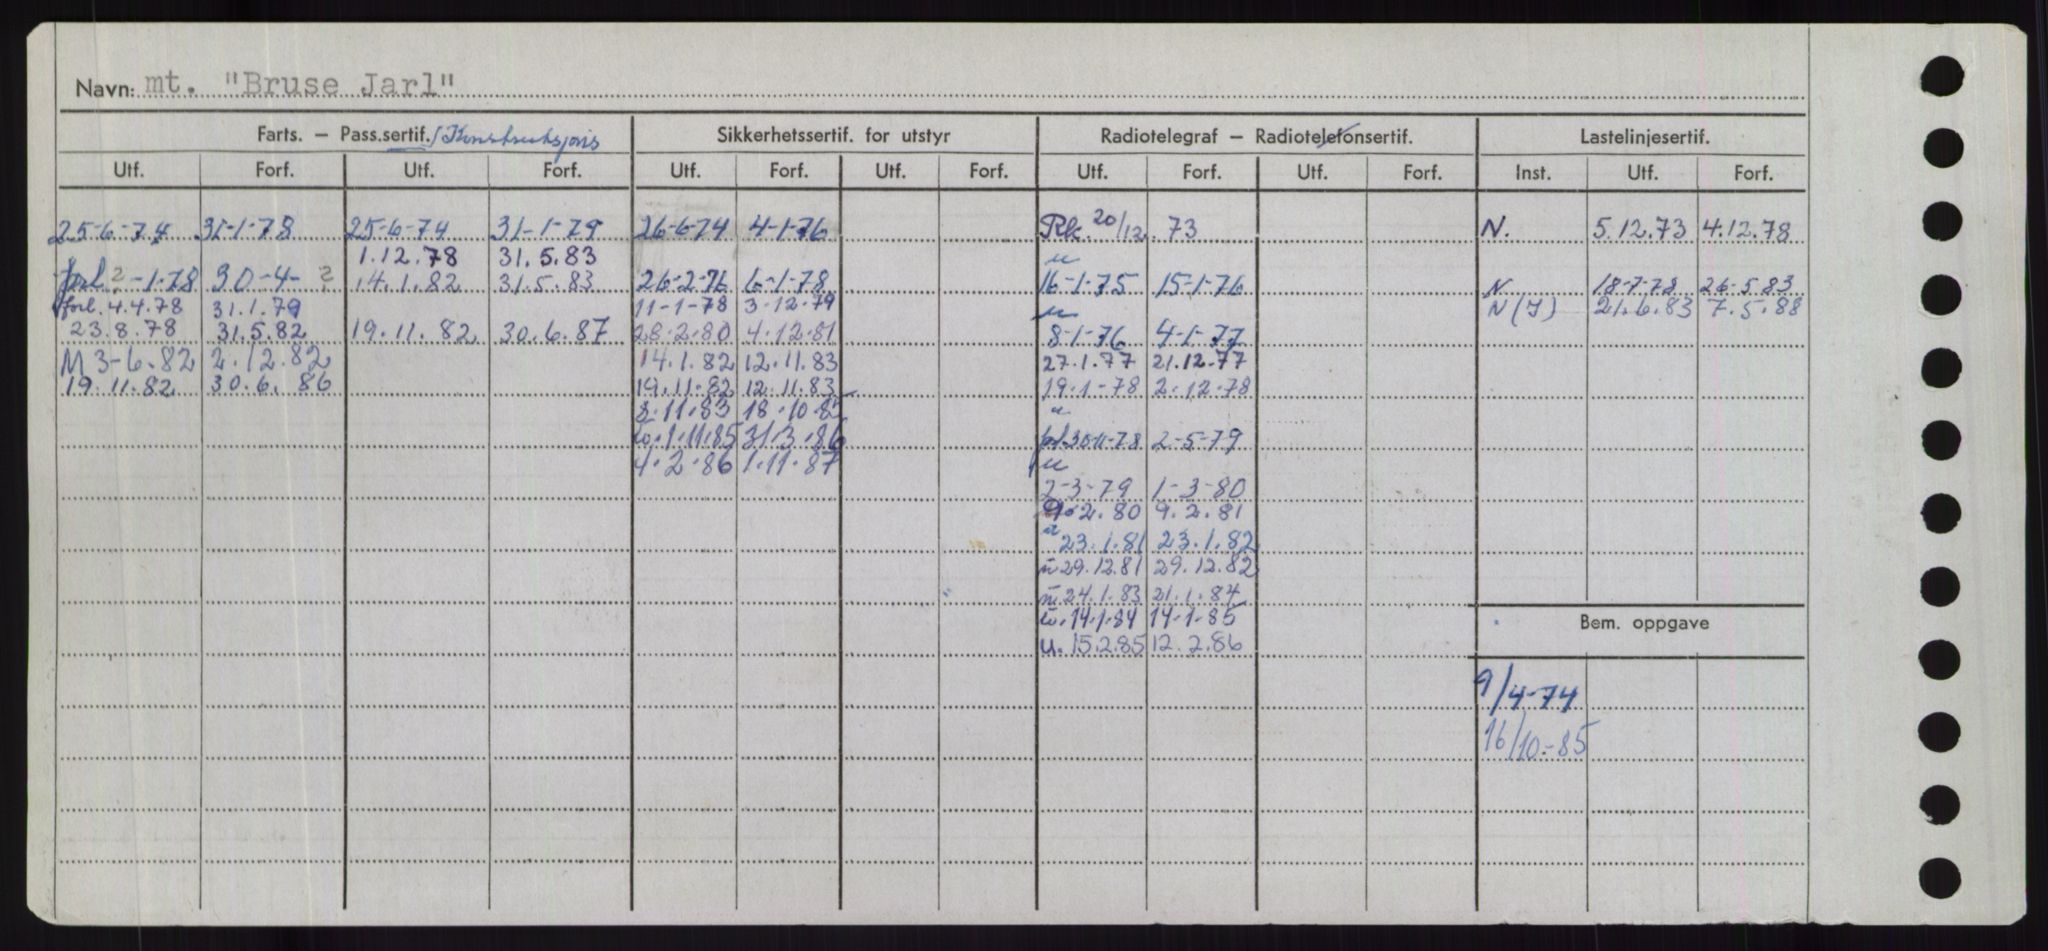 Navn: mt. "Bruse Jarl"
Farts. – Pass.sertif./Konstruksjons Sikkerhetssertif. for utstyr Radiotelegraf – Radiotelefonsertif. Lastelinjesertif.
Utf. Forf. Utf. Forf. Utf. Forf. Utf. Forf. Utf. Forf. Utf. Forf. Inst. Utf. Forf.
25-6-74 31-1-78 25-6-74 31-1-79 26-6-74 4-1-76 Rk. 20/12. 73 N. 5.12.73 4.12.78
1.12.78 31.5.83 u
forl ?-1-78 30-4-? 14.1.82 31.5.83 26-2-76 6-1-78 16-1-75 15-1-76 N 18-7-78 26-5.83
forl. 4.4.78 31.1.79 11-1-78 3-12-79 u N(I) 21.6.83 7.5.88
23.8.78 31.5.82 19.11.82 30.6.87 28.2.80 4.12.81 8-1-76 4-1-77
M 3-6.82 2.12.82 14.1.82 12.11.83 27.1.77 21.12.77
19.11.82 30.6.86 19.11.82 12.11.83 19.1-78 2.12-78
8.11.83 18.10.85 u
1.11.85 31.3.86 30-11-78 2-5-79
4.2.86 1.11.87 u
2-3-79 1-3-80
9.2.80 9.2.81
u 23.1.81 23.1.82
u 29.12.81 29.12.82
u. 24.1.83 21.1.84
u. 14.1.84 14.1.85
u. 15.2.85 12.2.86
Bem. oppgave
9/4-74
16/10.-85